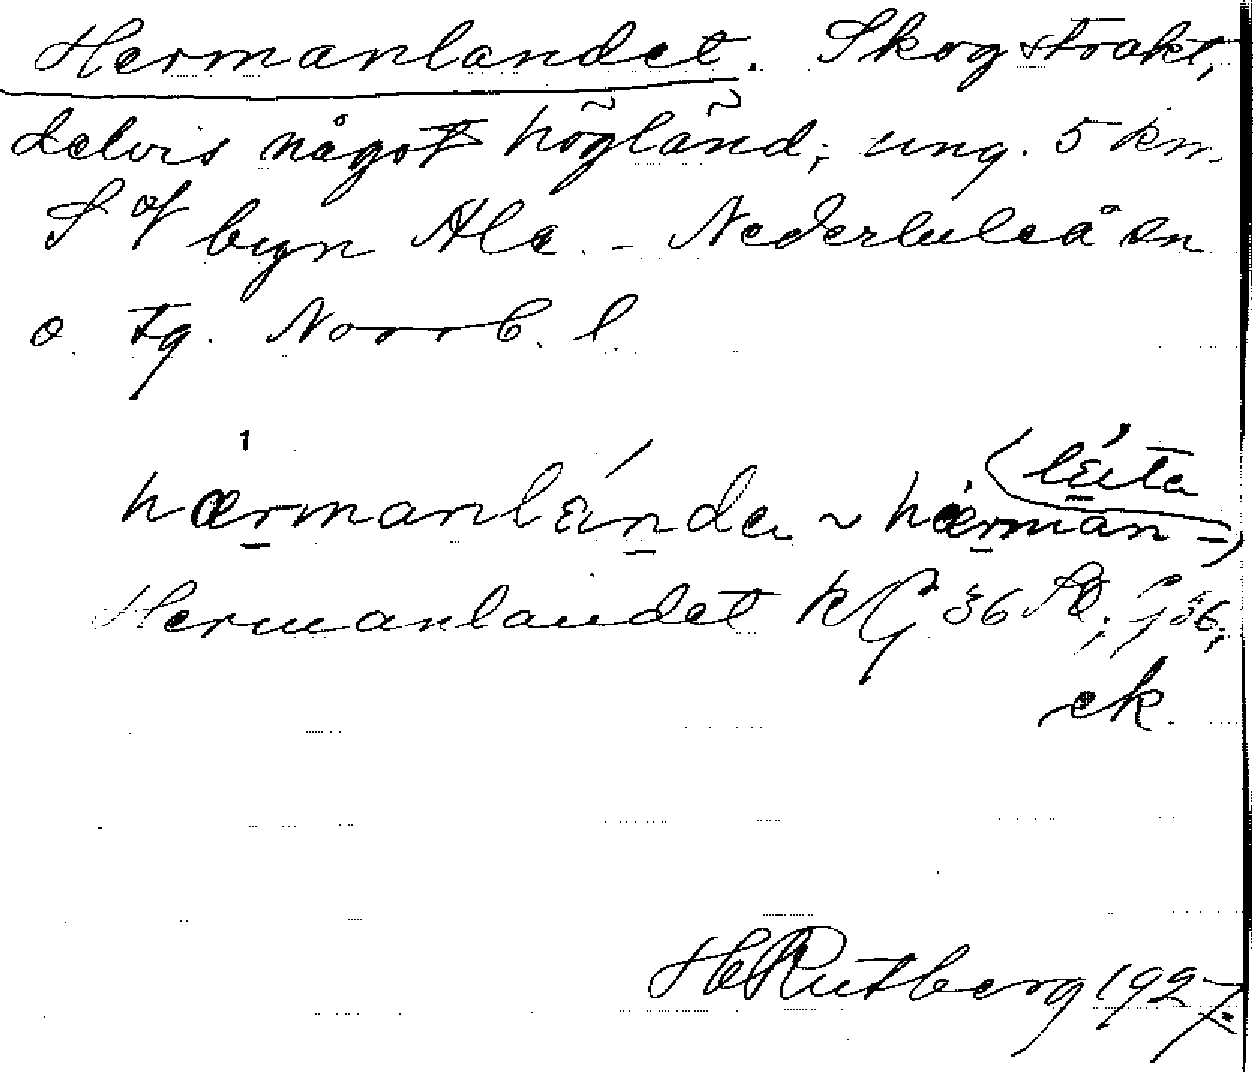 Hermanlandet. Skogstrakt,
delvis något högländ; ung. 5 km.
S of byn Ale. - Nederluleå sn
o. tg. Norrb. l.
1
(lɛ́ita
hærmanlɛ́ndɛ ~ hærman-)
Hermanlandet kG 36 Ræ; G 36;
ek.
HRutberg 1927.